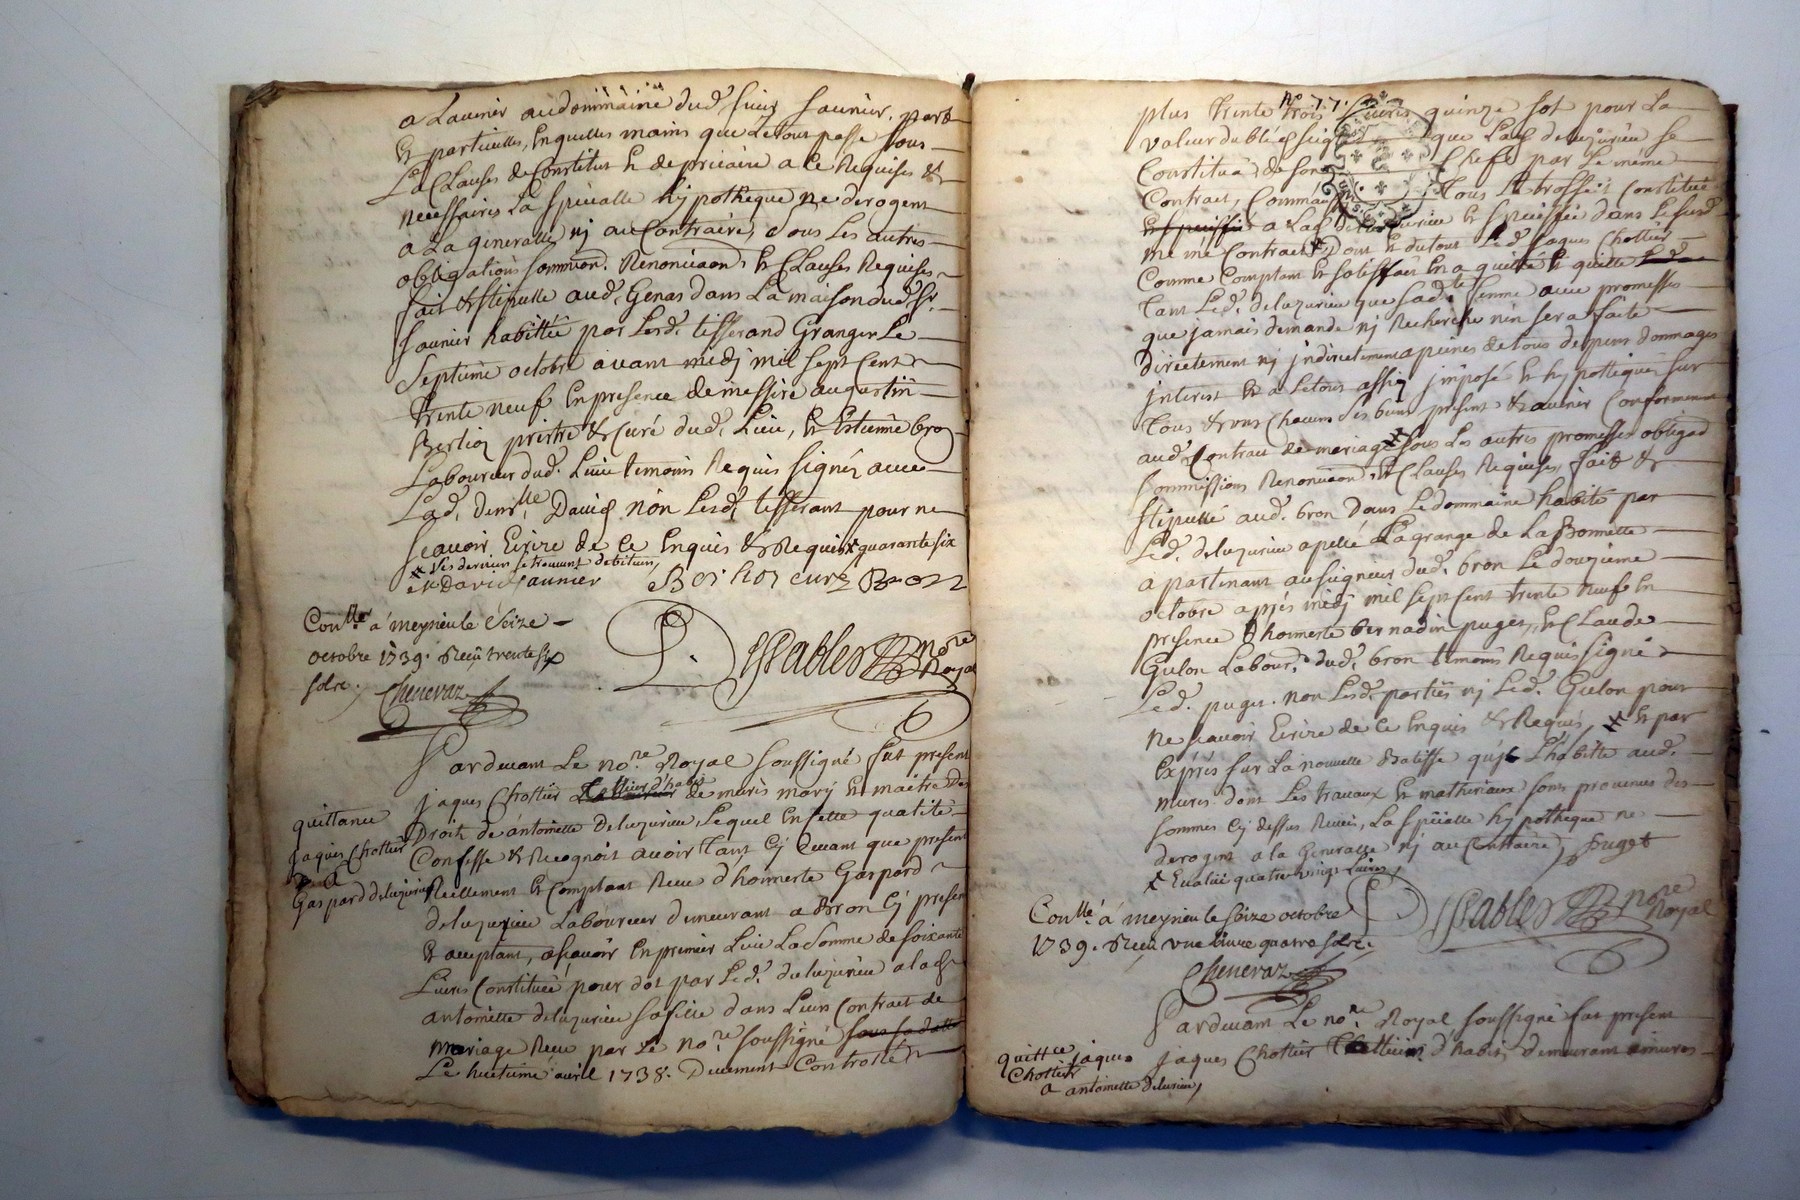 a Lavenir audommaine dud. sieur saunier, part
Et particulles, Enquelles mains que Letout passe sous
La Clauses de Constitut Et de precaire a Ce Requises &
necessaires La specialle hypotheque ne derogent
a La generalle nj au Contraire, sous Les autres
obligations soummon. Renonciaons Et Clauses Requises
fait & stipullé aud. Genas dans La maison dud. Sr.
saunier habittée par Lesd. tisserand Granger Le
septieme octobre avant midj mil sept Cent
trente neuf En presence de messire augustin
Berlioz prestre & Curé dud. Lieu, Et Estienne bron
Laboureur dud. Lieu temoins Requis signéz avec
Lad. demlle David non Lesd. tisserant pour ne
scavoir Ecrire de Ce Enquis & Requis quarante six
Les derniers se trouvent debitum,
David Saunier Berlioz curé Bron
Conlle a meyrieu le seize
octobre 1739. Reçu trente six
solz. Cheneraz
nore Royal
Pardevant Le nore Royal soussigné fut present
jaques Chottier tallieur d'habis de muris mary Et maitre des
quittance
jaques Chottier
a
Gaspard deluzurieu
Droits de antoinette deluzurieu, Lequel En sette qualité
Confesse & Recognoit avoir tant Cj devant que present
Reellement Et Comptant Receu d'honneste Gaspard
deluzurieu Laboureur demeurant a Bron Cj present
Et acceptant, ascavoir En premier Lieu La somme de soixante
Livres Constituée pour dot par Led. deluzurieu a Lad.
antoinette deluzurieu sa fille dans Leur Contrat de
mariage Receu par Le nore soussigné sous sa datte
Le huitieme avril 1738. Deuement Controllé
No 77.
plus trente trois Livres quinze sol pour La
valeur du bled seigle que Lad. deluzurieu se
Constitua de son Chef par Le même
Contrat, Comme aussi tous Et trossel Constitué
a Lad. deluzurieu Et speciffié dans Lesusd.
même Contrat, Dont Et dutout Led. jaques Chottier
Comme Comptant Et satisfait En a quitté Et quitte
tant Led. deluzurieu que sad. femme avec promesses
que jamais demande nj Recherche nen sera faite
Directement nj jndirectement a peines de tous depens dommages
jnterest Et a Letout assig jmposé Et hypottequés sur
tous & uns Chacuns ses biens present & avenir Conformement
aud. Contrat de mariage sous Les autres promesses obligaõ
soummissions Renonciaon & Clauses Requises, fait &
stipullé aud. bron Dans Ledommaine habité par
Led. deluzurieu apellé La grange de La Bonnette
apartenant auseigneur dud. bron Le douzieme
octobre aprés midj mil sept Cent trente neuf En
presence d'honneste bernadin puget, Et Claude
Gulon Labour. dud. bron temoins Requis signé
Led. puget. non Lesd. parties nj Led. Gulon pour
ne scavoir Ecrire de Ce Enquis & Requis, Et par
Exprés sur La nouvelle Batisse quj L'habitte aud.
muris dont Les travaux Et matheriaux sont provenus des
sommes Cj dessus Receues, La specialle hypotheque ne
derogent a la Generalle nj au Contraire, Puget
Evalué quatre vingt Livres,
nore Royal
Conlle a meyrieu le seize octobre
1739. Reçu une livre quatre solz.
Cheneraz
Pardevant Le nore Royal soussigné fut present
quittce jaques
Chottier
a antoinette deluzurieu,
jaques Chottier tallieur d'habis, demeurant a muris